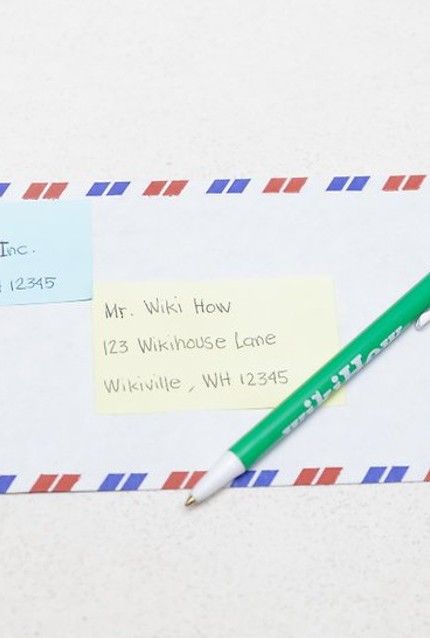 Inc.
12345
Mr. Wiki How
123 Wikihouse Lane
Wikiville, WH 12345
wikiHow